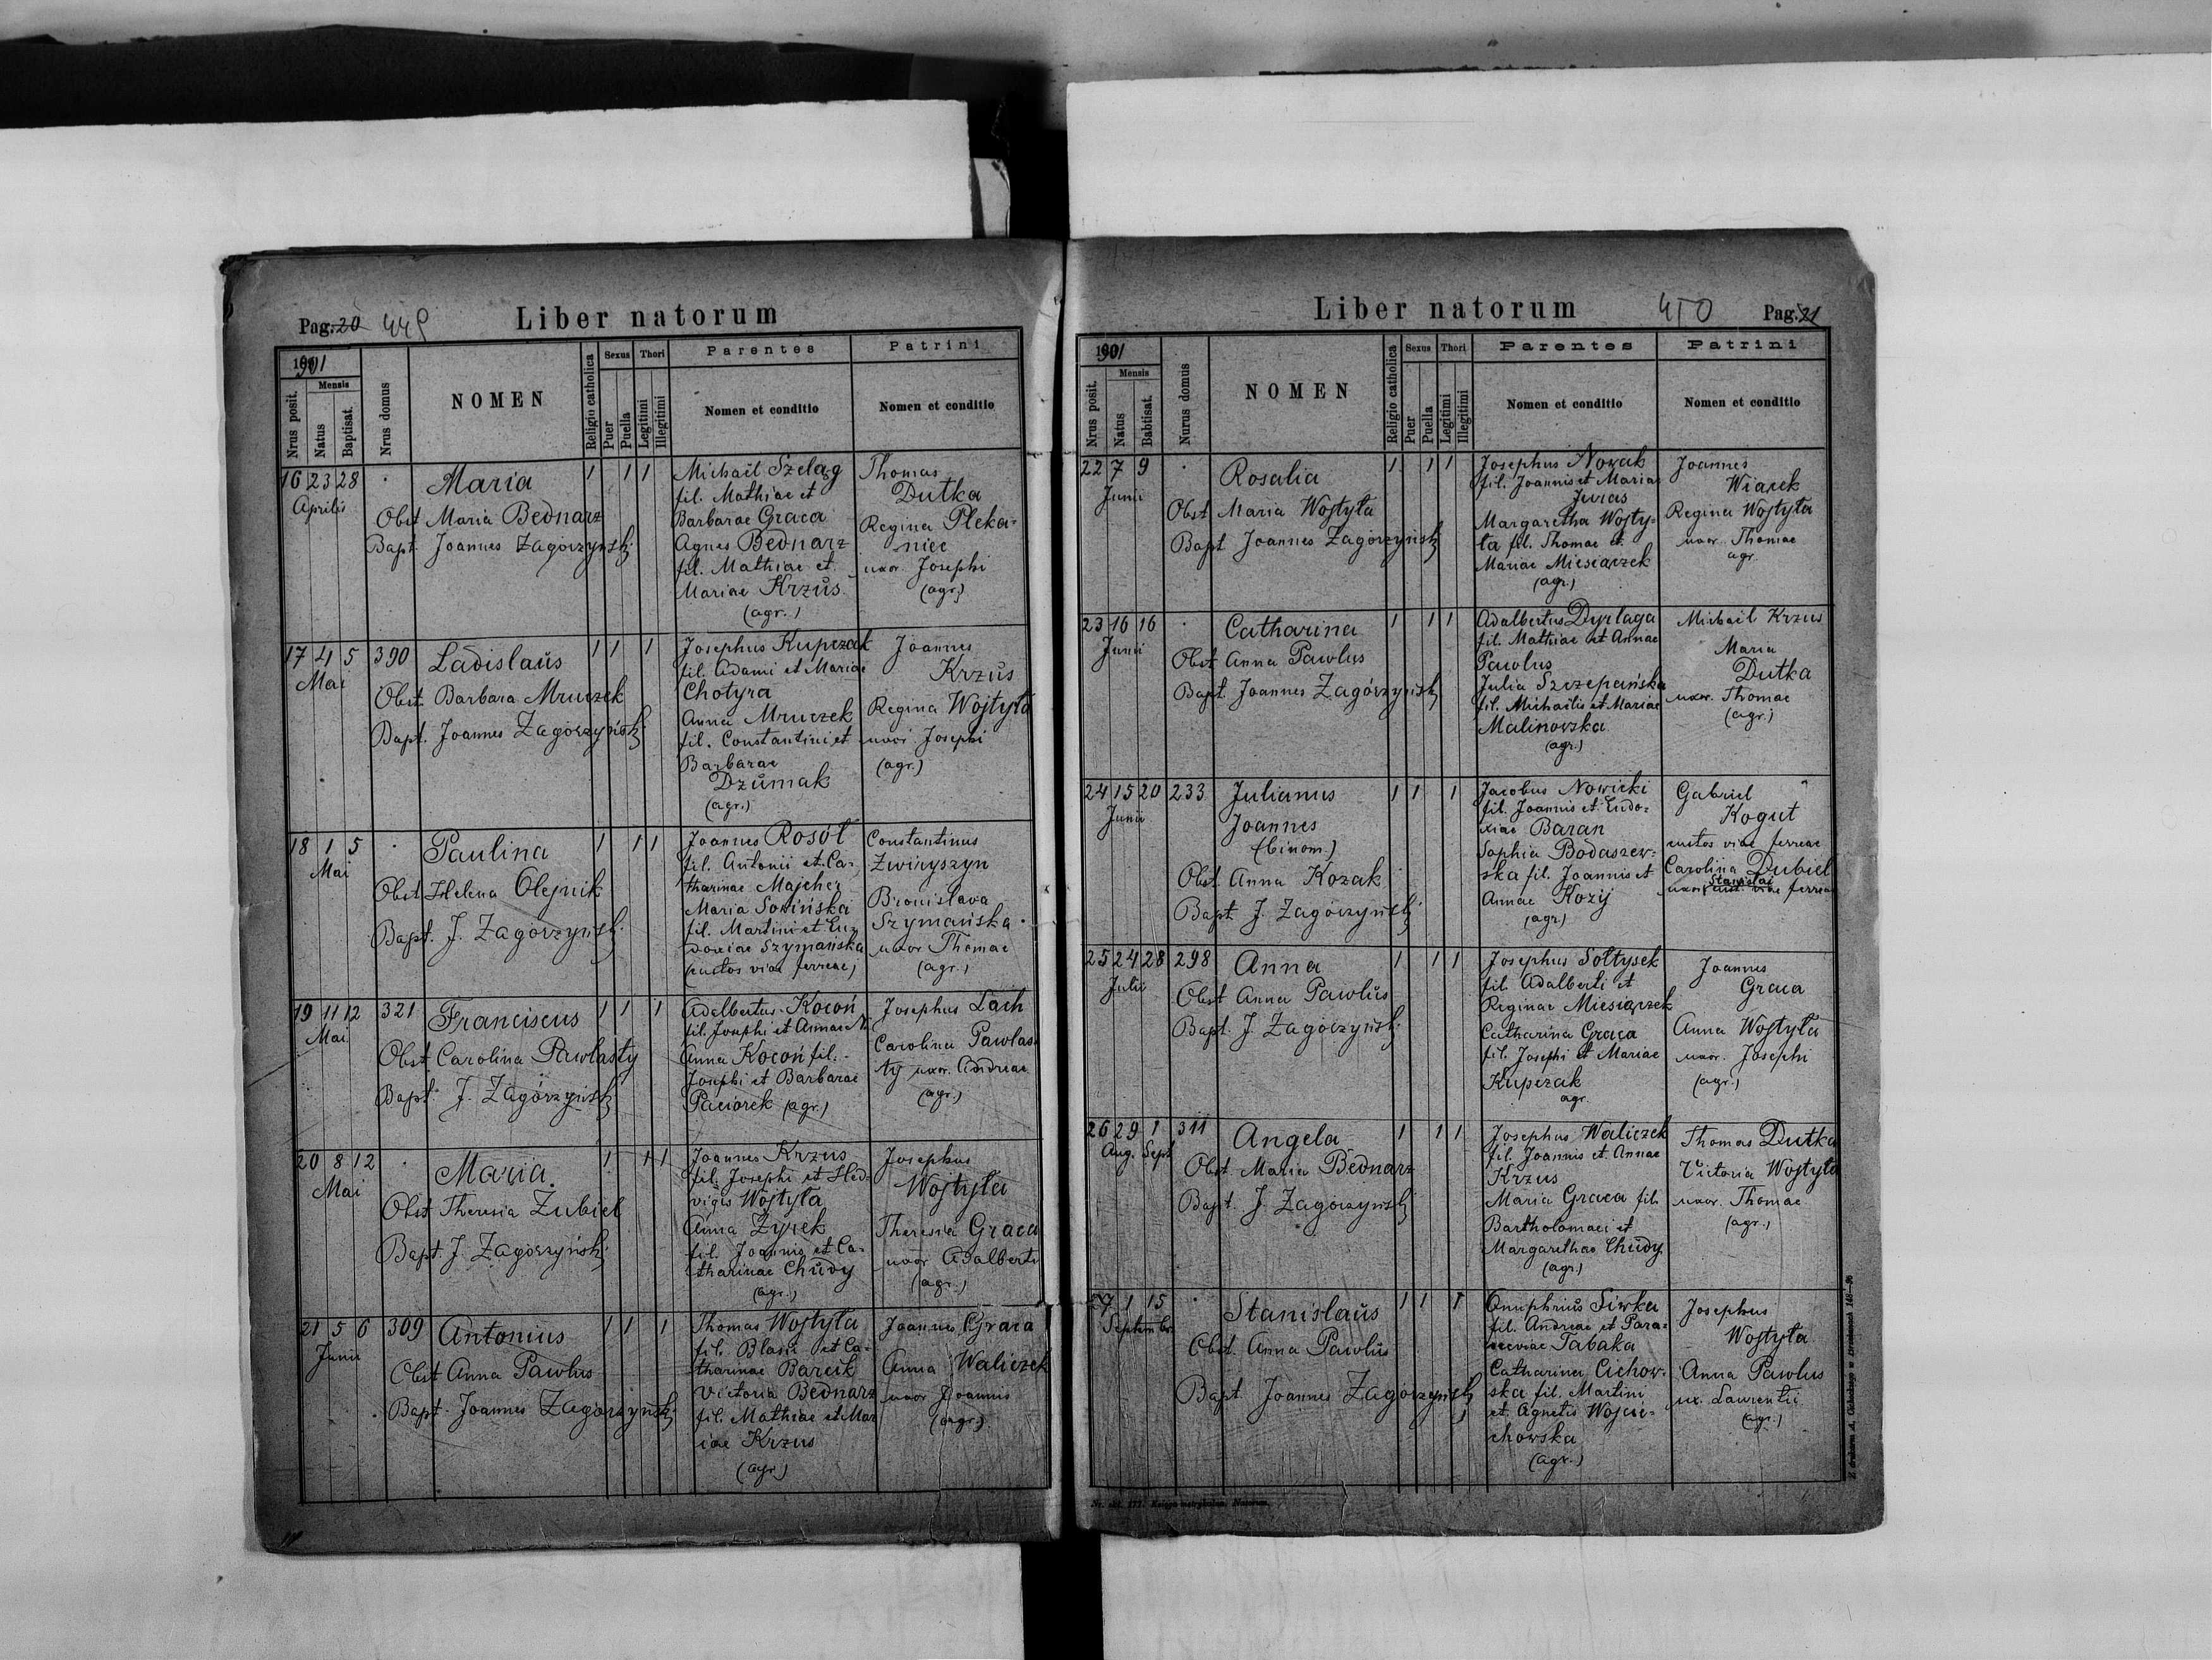 Pag. 20 449
Liber natorum
1901
Nrus posit.
Mensis
Natus
Baptisat.
Nrus domus
NOMEN
Religio catholica
Sexus
Puer
Puella
Thori
Legitimi
Illegitimi
Parentes
Nomen et conditio
Patrini
Nomen et conditio
16 23 28
Aprilis
Maria
Obst Maria Bednarz
Bapt. Joannes Zagórzyński
1 1 1
Michaël Szeląg
fil. Mathiae et
Barbarae Graca
Agnes Bednarz
fil. Mathiae et
Mariae Krzus
(agr.)
Thomas
Dutka
Regina Pleka-
niec
uxor. Josephi
(agr.)
17 4 5 390
Mai
Ladislaŭs
Obst. Barbara Mruczek
Bapt. Joannes Zagórzyński
1 1 1
Josephus Kupczak
fil. Adami et Mariae
Chotyra
Anna Mruczek
fil. Constantini et
Barbarae
Dzŭmak
(agr.)
Joannes
Krzŭs
Regina Wojtyła
uxor. Josephi
(agr.)
18 1 5
Mai
Paulina
Obst Helena Olejnik
Bapt. J. Zagórzyński
1 1 1
Joannes Rosół
fil. Antonii et Ca-
tharinae Majcher
Maria Sosińska
fil. Martini et Eu-
doxiae Szymańska
(custos viae ferreae)
Constantinus
Zwiryszyn
Bronislava
Szymańska
uxor Thomae
(agr.)
19 11 12 321
Mai
Franciscus
Obst Carolina Pawlasty
Bapt. J. Zagórzyński
1 1 1
Adalbertus Kocoń
fil. Josephi et Annae N.
Anna Kocoń fil.
Josephi et Barbarae
Paciorek (agr.)
Josephus Lach
Carolina Pawlas-
ty uxor. Andreae
(agr.)
20 8 12
Mai
Maria
Obst Theresia Zubiel
Bapt. J. Zagórzyński
1 1 1
Joannes Krzus
fil. Josephi et Hed-
vigis Wojtyła
Anna Żyrek
fil. Joannis et Ca-
tharinae Chŭdy
(agr.)
Josephus
Wojtyła
Theresia Graca
uxor Adalberti
(agr.)
21 5 6 309
Junii
Antonius
Obst Anna Pawlus
Bapt. Joannes Zagórzyński
1 1 1
Thomas Wojtyła
fil. Blasii et Ca-
tharinae Barcik
Victoria Bednarz
fil. Mathiae et Mar
iae Krzus
(agr.)
Joannes Graca
Anna Waliczek
uxor Joannis
(agr.)
Liber natorum
450 Pag. 21
1901
Nrus posit.
Mensis
Natus
Babtisat.
Nurus domus
NOMEN
Religio catholica
Sexus
Puer
Puella
Thori
Legitimi
Illegitimi
Parentes
Nomen et conditio
Patrini
Nomen et conditio
22 7 9
Junii
Rosalia
Obst Maria Wojtyła
Bapt Joannes Zagórzyński
1 1 1
Josephus Nowak
fil. Joannis et Mariae
Juras
Margaretha Wojty-
ła fil. Thomae et
Mariae Miesiączek
(agr.)
Joannes
Wiarek
Regina Wojtyła
uxor. Thomae
agr
23 16 16
Junii
Catharina
Obst Anna Pawlus
Bapt. Joannes Zagórzyński
1 1 1
Adalbertus Dyrlaga
fil. Mathiae et Annae
Pawlus
Julia Szczepańska
fil. Michaëlis et Mariae
Malinowska
(agr.)
Michaël Krzus
Maria
Dutka
uxor. Thomae
(agr.)
24 15 20 233
Junii
Julianus
Joannes
(binom.)
Obst Anna Kozak
Bapt. J. Zagórzyński
1 1 1
Jacobus Nowicki
fil. Joannis et Eudo-
xiae Baran
Sophia Bodaszew-
ska fil. Joannis et
Annae Kozij
(agr.)
Gabriel
Kogut
custos viae ferreae
Carolina Dubiel
Stanislai
uxor cust. viae ferreae
25 24 28 298
Julii
Anna
Obst Anna Pawlŭs
Bapt. J. Zagórzyński
1 1 1
Josephus Sołtysek
fil. Adalberti et
Reginae Miesiączek
Catharina Graca
fil. Josephi et Mariae
Kupczak
agr.
Joannes
Graca
Anna Wojtyła
uxor. Josephi
(agr.)
26 29 1 311
Aug. Sept
Angela
Obst. Maria Bednarz
Bapt. J. Zagórzyński
1 1 1
Josephus Waliczek
fil. Joannis et Annae
Krzus
Maria Graca fil.
Bartholomaei et
Margarethae Chŭdy
(agr.)
Thomas Dutka
Victoria Wojtyła
uxor. Thomae
(agr.)
27 1 15
Septembr.
Stanislaŭs
Obst. Anna Pawlŭs
Bapt. Joannes Zagórzyński
1 1 1
Onuphriŭs Siwka
fil. Andreae et Para-
sceviae Tabaka
Catharina Cichow-
ska fil. Martini
et Agnetis Wojcie-
chowska
(agr.)
Josephus
Wojtyła
Anna Pawlus
ux. Laurentii
(agr.)